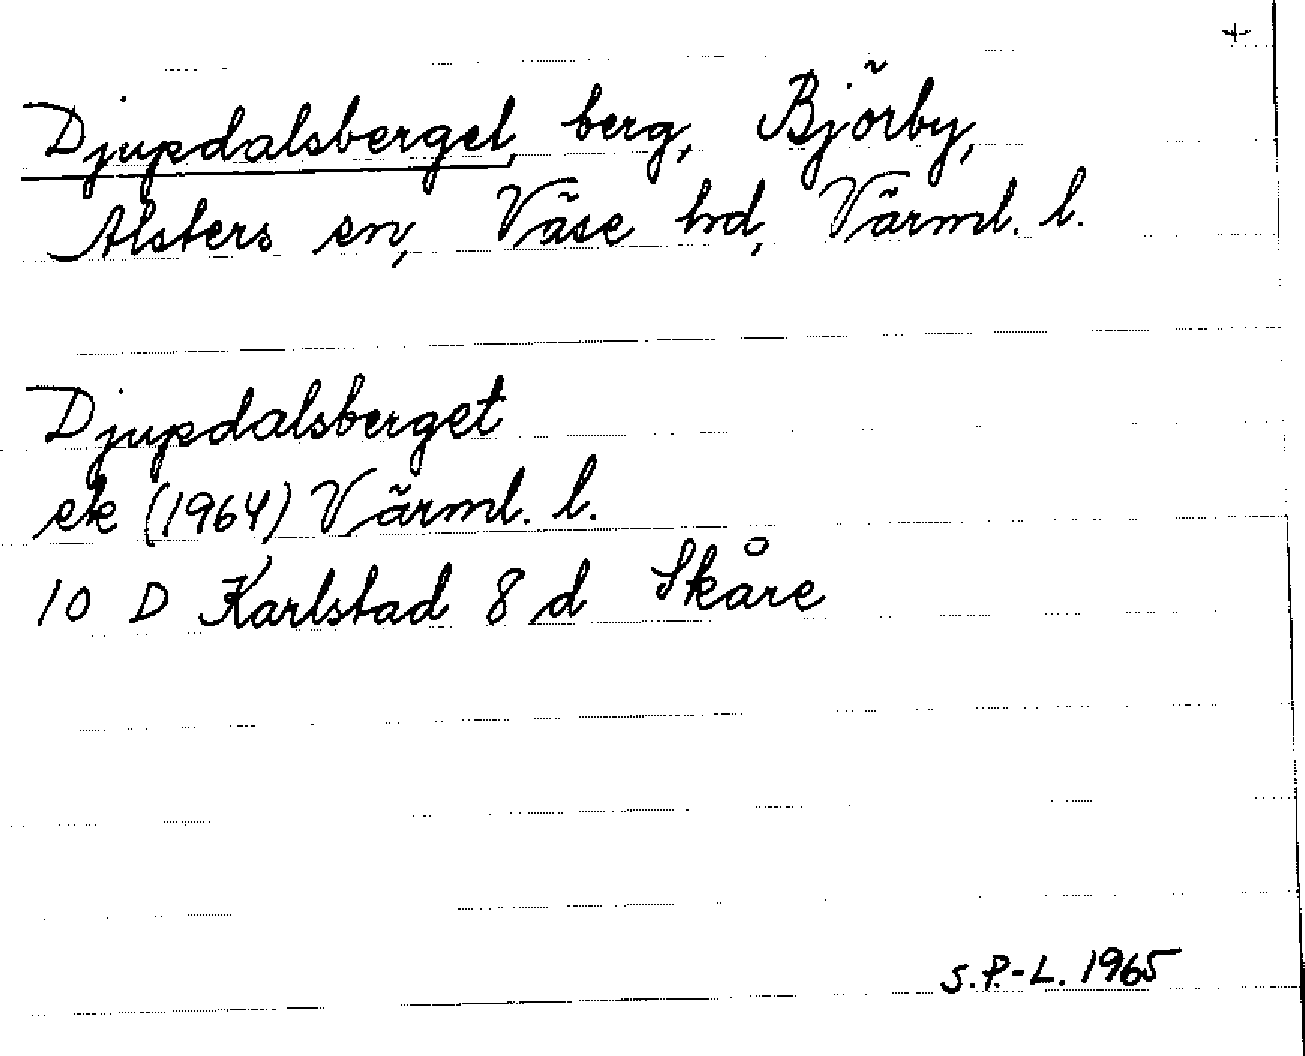 +
Djupdalsberget, berg, Björby,
Alsters sn, Väse hd, Värml. l.
Djupdalsberget
ek (1964) Värml. l.
10 D Karlstad 8 d Skåre
S.P.-L. 1965